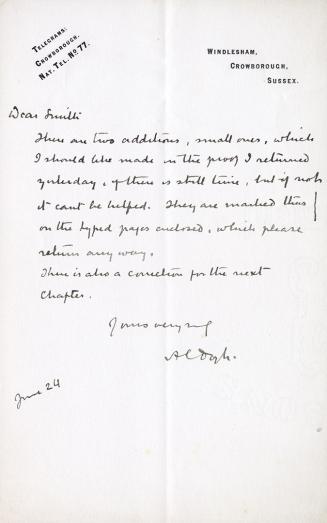 TELEGRAMS:
CROWBOROUGH.
NAT. TEL. NO. 77.
WINDLESHAM,
CROWBOROUGH,
SUSSEX.
Dear Smith
There are two additions, small ones, which
I should like made in the proof I returned
yesterday, if there is still time, but if not
it cant be helped. They are marked thus |
on the typed pages enclosed, which please
return any way.
There is also a correction for the next
Chapter.
Yours very truly
A C Doyle.
June 24